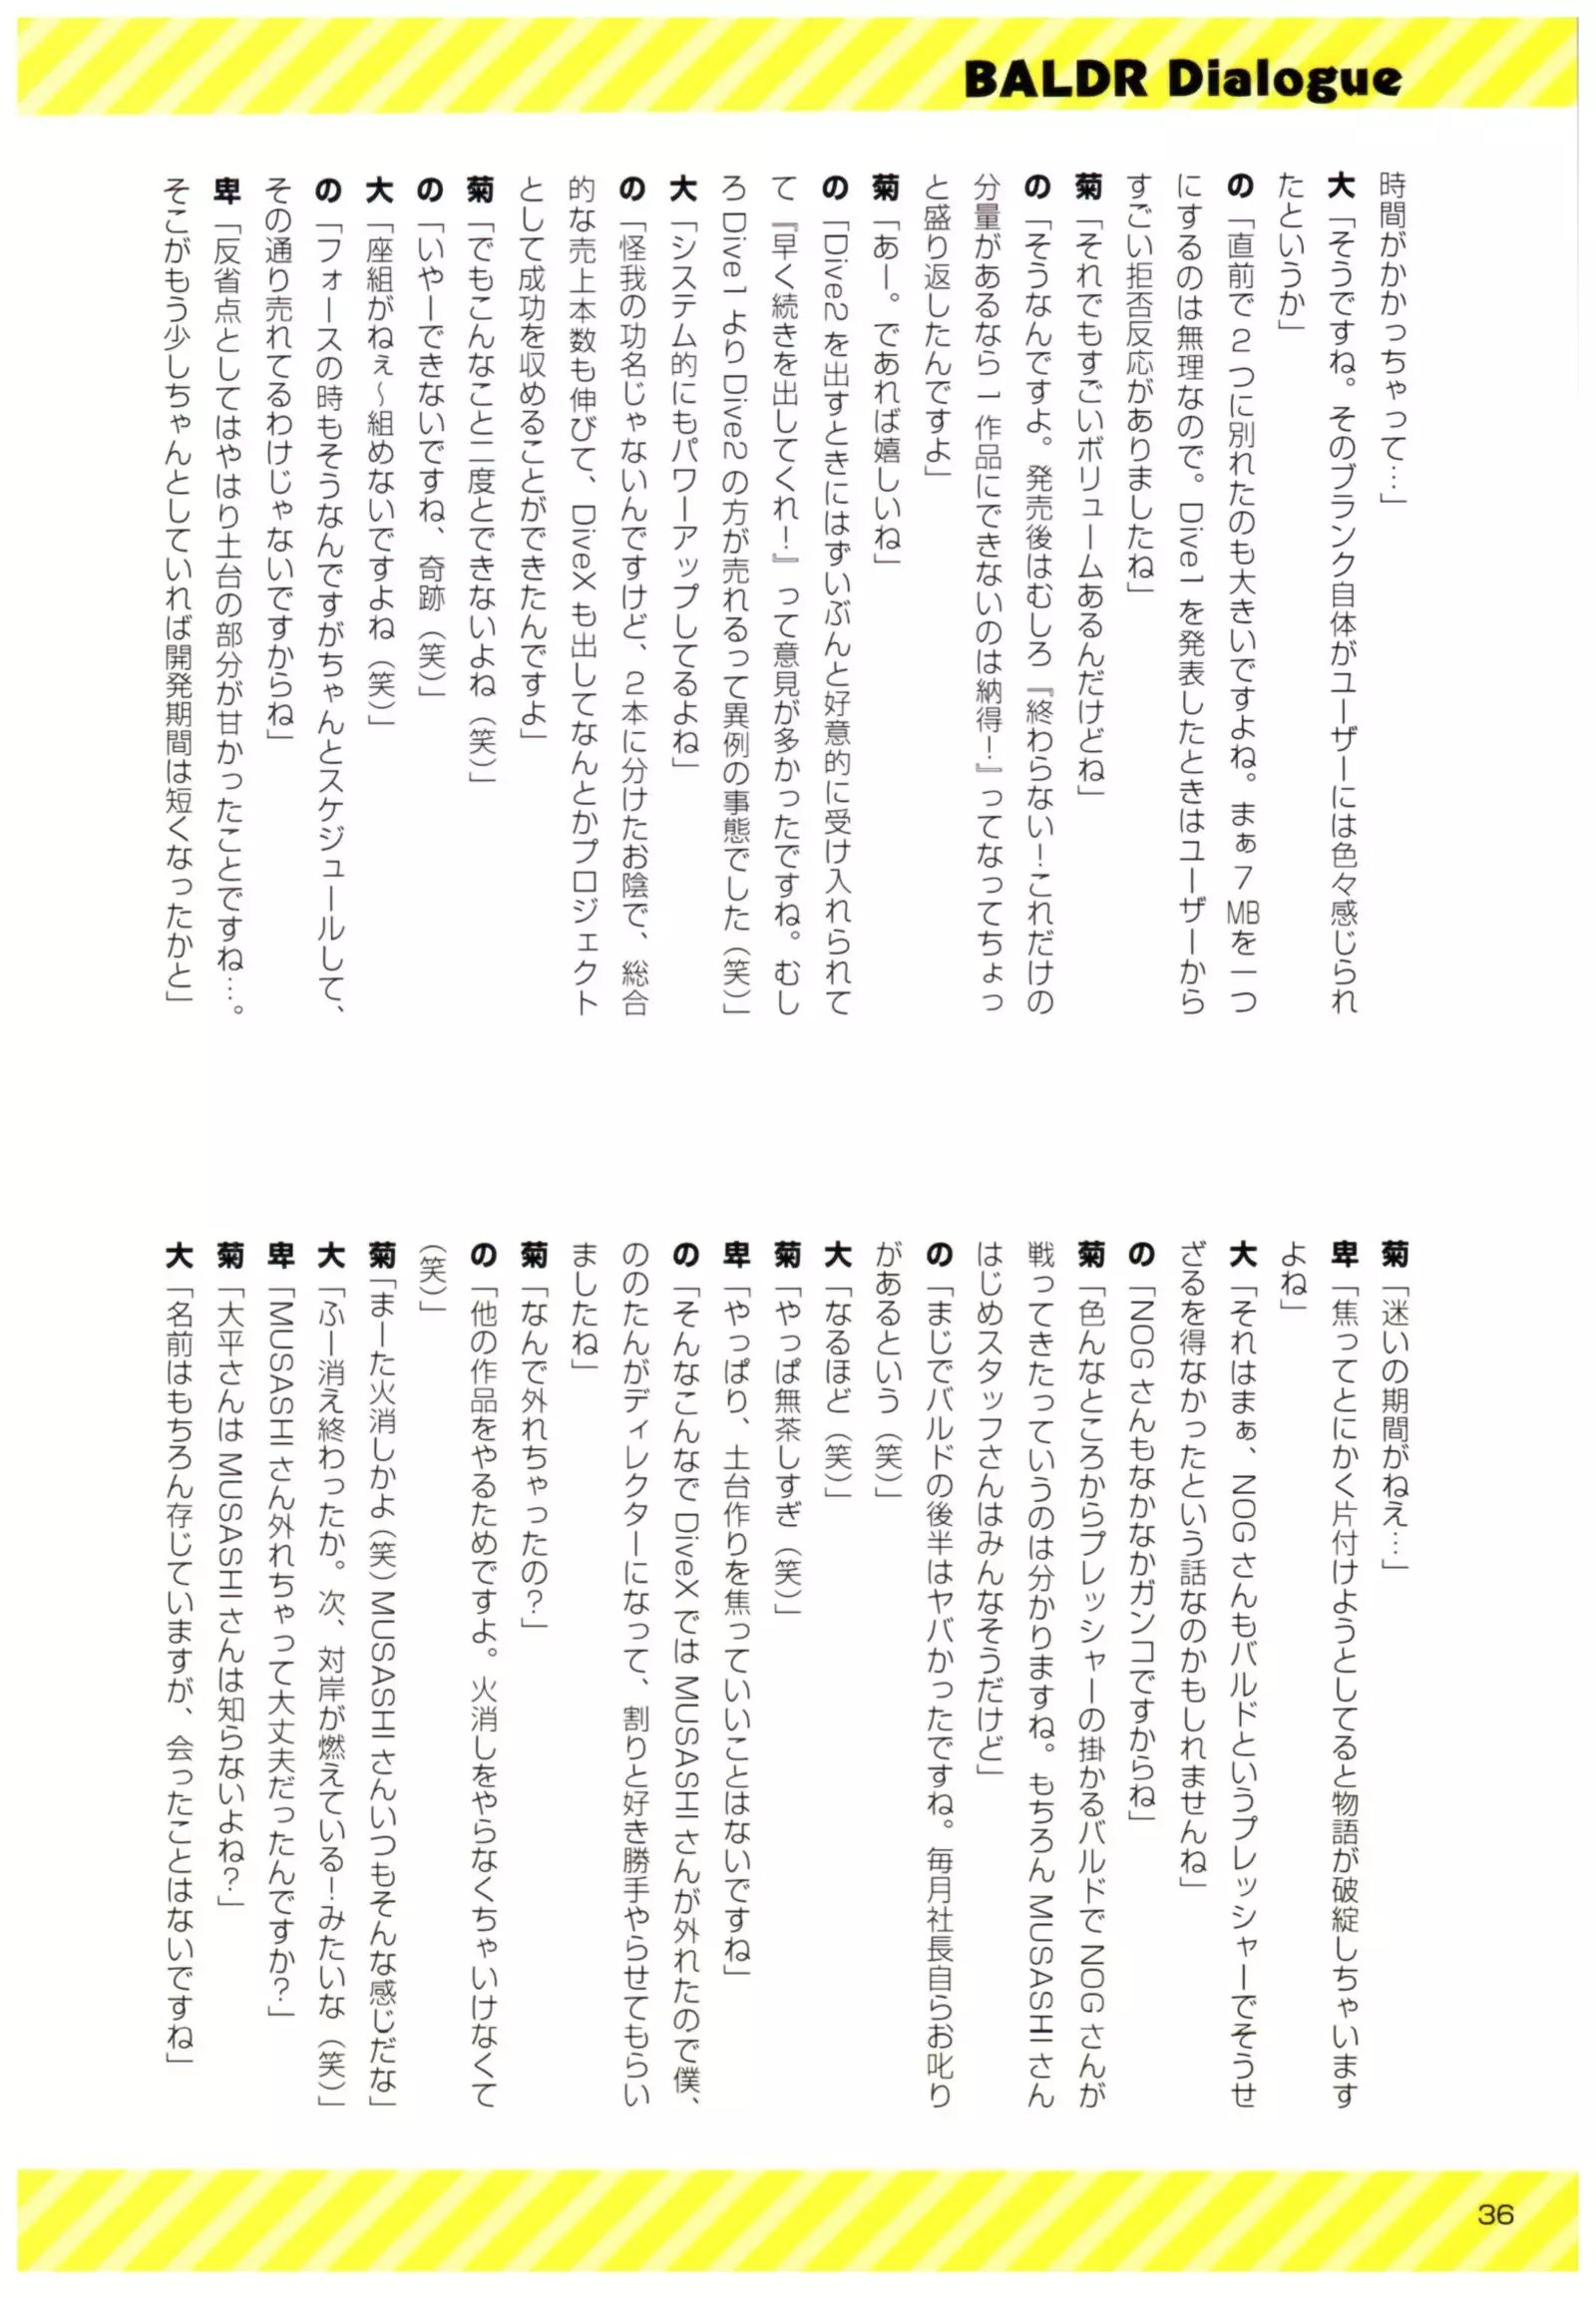 BALDR Dialogue
時間がかかっちゃって…」
大「そうですね。そのブランク自体がユーザーには色々感じられ
たというか」
の「直前で2つに別れたのも大きいですよね。まぁ7MBを一つ
にするのは無理なので。Dive1を発表したときはユーザーから
すごい拒否反応がありましたね」
菊「それでもすごいボリュームあるんだけどね」
の「そうなんですよ。発売後はむしろ『終わらない！これだけの
分量があるなら1作品にできないのは納得！』ってなってちょっ
と盛り返したんですよ」
菊「あー。であれば嬉しいね」
の「Dive2を出すときにはずいぶんと好意的に受け入れられて
て『早く続きを出してくれ！』って意見が多かったですね。むし
ろDive1よりDive2の方が売れるって異例の事態でした（笑）」
大「システム的にもパワーアップしてるよね」
の「怪我の功名じゃないんですけど、2本に分けたお陰で、総合
的な売上本数も伸びて、DiveXも出してなんとかプロジェクト
として成功を収めることができたんですよ」
菊「でもこんなこと二度とできないよね（笑）」
の「いやーできないですね、奇跡（笑）」
大「座組がねぇ～組めないですよね（笑）」
の「フォースの時もそうなんですがちゃんとスケジュールして、
その通り売れてるわけじゃないですからね」
卑「反省点としてはやはり土台の部分が甘かったことですね…。
そこがもう少しちゃんとしていれば開発期間は短くなったかと」
菊「迷いの期間がねえ…」
卑「焦ってとにかく片付けようとしてると物語が破綻しちゃいます
よね」
大「それはまぁ、NOGさんもバルドというプレッシャーでそうせ
ざるを得なかったという話なのかもしれませんね」
の「NOGさんもなかなかガンコですからね」
菊「色んなところからプレッシャーの掛かるバルドでNOGさんが
戦ってきたっていうのは分かりますね。もちろんMUSASHIさん
はじめスタッフさんはみんなそうだけど」
の「まじでバルドの後半はヤバかったですね。毎月社長自らお叱り
があるという（笑）」
大「なるほど（笑）」
菊「やっぱ無茶しすぎ（笑）」
卑「やっぱり、土台作りを焦っていいことはないですね」
の「そんなこんなでDiveXではMUSASHIさんが外れたので僕、
ののたんがディレクターになって、割りと好き勝手やらせてもらい
ましたね」
菊「なんで外れちゃったの？」
の「他の作品をやるためですよ。火消しをやらなくちゃいけなくて
（笑）」
菊「まーた火消しかよ（笑）MUSASHIさんいつもそんな感じだな」
大「ふー消え終わったか。次、対岸が燃えている！みたいな（笑）」
卑「MUSASHIさん外れちゃって大丈夫だったんですか？」
菊「大平さんはMUSASHIさんは知らないよね？」
大「名前はもちろん存じていますが、会ったことはないですね」
36